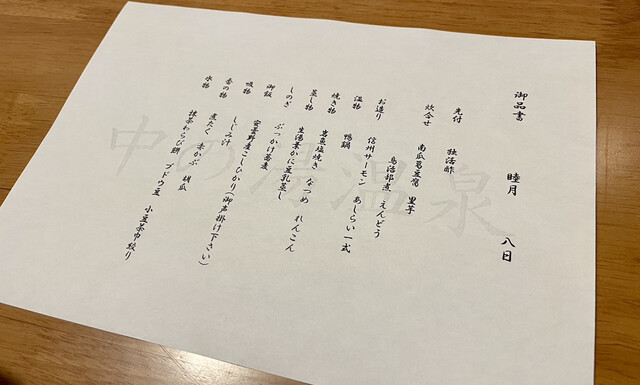 御品書
睦月 八日
先付 独活酢
炊合せ 南瓜葛豆腐 里芋
鳥治部煮 えんどう
お造り 信州サーモン あしらい一式
温物 鴨鍋
焼き物 岩魚塩焼き なつめ れんこん
蒸し物 生湯葉かに豆乳蒸し
しのぎ ぶっかけ蕎麦
御飯 安曇野産こしひかり(御声掛け下さい)
吸物 しじみ汁
香の物 煮たく 赤かぶ 胡瓜
水物 抹茶わらび餅 ブドウ豆 小豆茶巾絞り
中の湯温泉